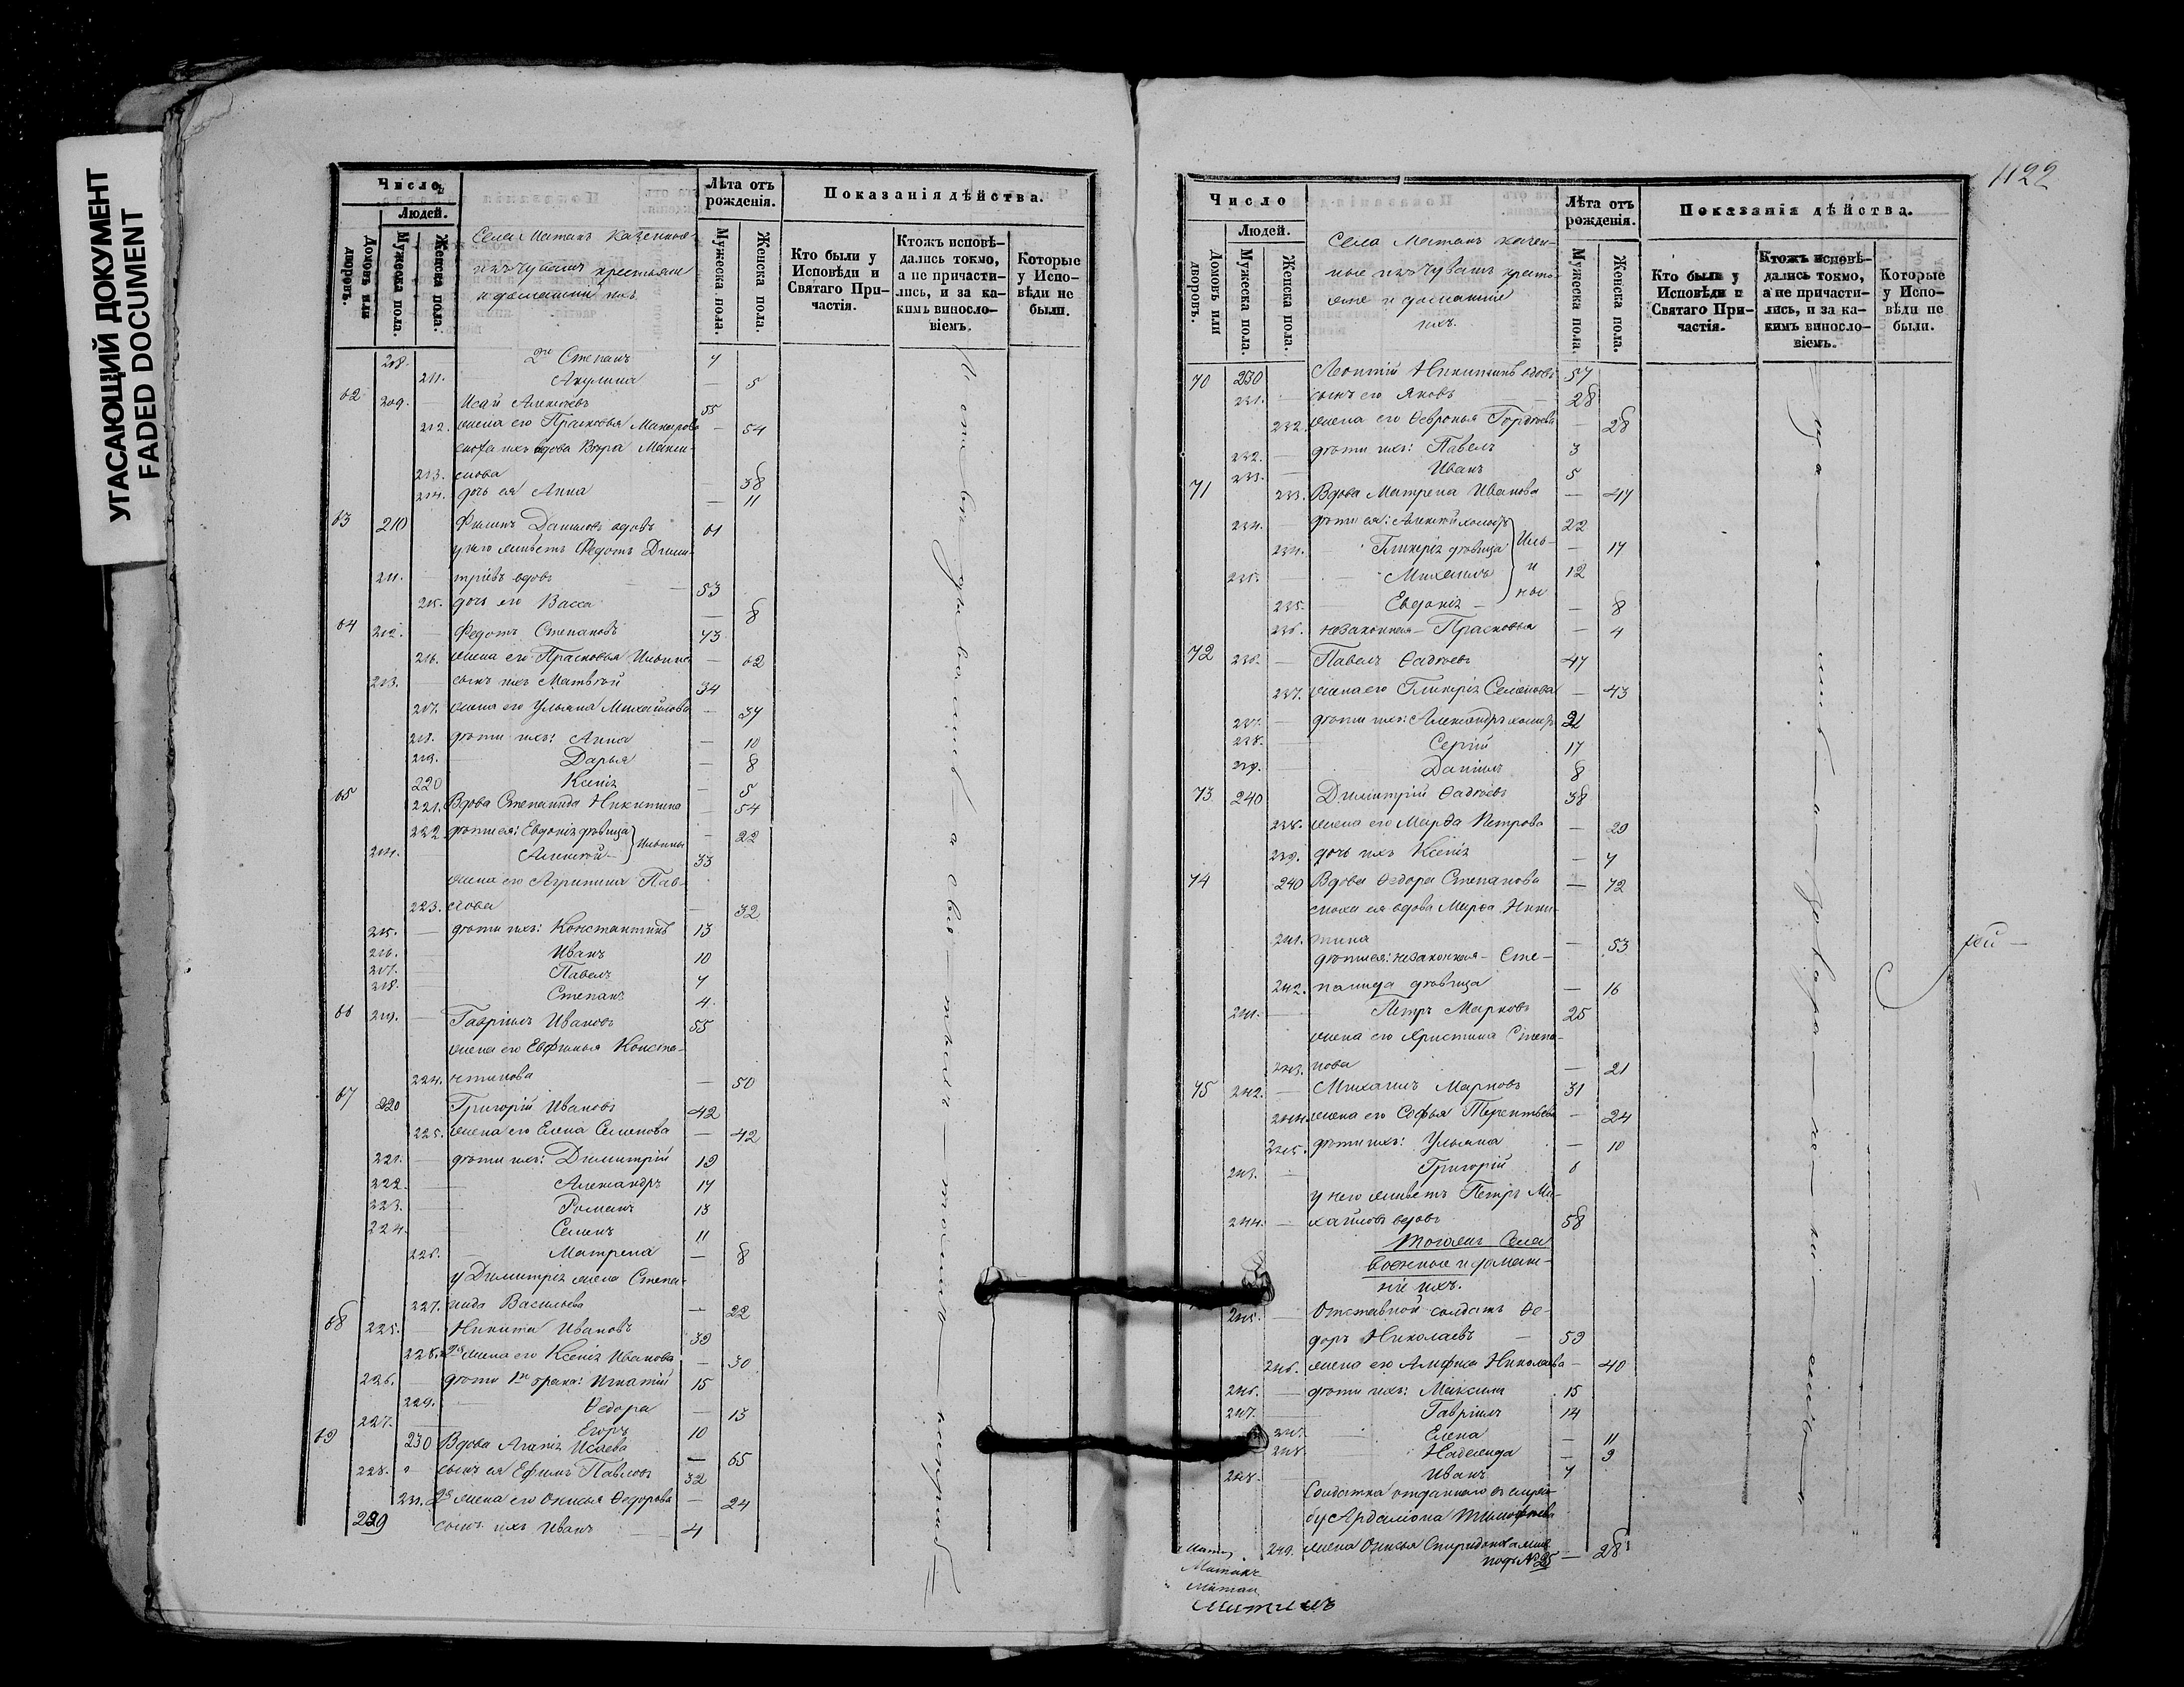 УГАСАЮЩИЙ ДОКУМЕНТ
FADED DOCUMENT
Число
Людей.
Домовъ или дворовъ.
Мужеска пола.
Женска пола.
Села Матакъ казенные
изъ чувашъ крестьяне
и домашніи ихъ.
Лѣта отъ рожденія.
Мужеска пола.
Женска пола.
Показанія дѣйства.
Кто были у Исповѣди и Святаго Причастія.
Ктожъ исповѣдались токмо, а не причастились, и за какимъ винословіемъ.
Которые у Исповѣди не были.
208. 2й Степанъ 7
211. Акулина — 5
62 209. Исай Алексѣевъ 55
212. жена его Прасковья Макарова — 54
сноха ихъ вдова Вѣра Макси-
213. мова — 38
214. дочь ея Анна — 11
63 210 Филипъ Даниловъ вдовъ 61
у него живетъ Федотъ Дими-
211. тріевъ вдовъ 53
215. дочь его Васса — 8
64 212. Федотъ Степановъ 73
216. жена его Прасковья Ильина — 62
213. сынъ ихъ Матвѣй 34
217. жена его Ульяна Михайлова — 37
218. дѣти ихъ: Анна — 10
219. Дарья — 8
220 Ксенія — 5
65 221. Вдова Степанида Никитина — 54
222 дѣти ея: Евдокія дѣвица — 22
214. Алексѣй Ильины 33
жена его Агрипина Пав-
223. лова — 32
215. дѣти ихъ: Константинъ 13
216. Иванъ 10
217. Павелъ 7
218. Степанъ 4
66 219. Гавріилъ Ивановъ 55
жена его Евфимья Конста-
224. нтинова — 50
67 220 Григорій Ивановъ 42
225. жена его Елена Семенова — 42
221. дѣти ихъ: Димитрій 19
222. Александръ 17
223. Романъ 13
224. Семенъ 11
226. Матрена — 8
у Димитрія жена Степа-
227. нида Васильева — 22
68 225. Никита Ивановъ 39
228. 2я жена его Ксенія Иванова — 30
226. дѣти 1го брака: Игнатій 15
229. Ѳедора — 13
227. Егоръ 10
69 230 Вдова Агапія Исаева — 65
228. сынъ ея Ефимъ Павловъ 32
231. 2я жена его Ѳедорова — 24
229 сынъ ихъ Иванъ 4
1122
Число
Людей.
Домовъ или дворовъ.
Мужеска пола.
Женска пола.
Села Матакъ казен-
ные изъ чувашъ кресть-
яне и домашніи
ихъ.
Лѣта отъ рожденія.
Мужеска пола.
Женска пола.
Показанія дѣйства.
Кто были у Исповѣди и Святаго Причастія.
Ктожъ исповѣдались токмо, а не причастились, и за какимъ винословіемъ.
Которые у Исповѣди не были.
70 230 Леонтій Никитинъ вдовъ 57
231. сынъ его Яковъ 28
232. жена его Ѳевронья Гордѣева — 28
232. дѣти ихъ: Павелъ 3
233. Иванъ 5
71 233. Вдова Матрена Иванова — 47
234. дѣти ея: Алексѣй холостъ 22
234. Гликерія дѣвица Иль- — 17
235. Михаилъ и 12
235. Евдокія — ны — 8
236. незаконная — Прасковья — 4
72 236. Павелъ Ѳадѣевъ 47
237. жена его Гликерія Семенова — 43
237. дѣти ихъ: Александръ холостъ 21
238. Сергій 17
239. Даніилъ 8
73 240 Димитрій Ѳадѣевъ 38
238. жена его Марѳа Петрова — 29
239. дочь ихъ Ксенія — 7
74 240 Вдова Ѳедора Степанова — 72
сноха ея вдова Марѳа Ники-
241. тина — 53
дѣти ея: незаконная — Сте-
242. панида дѣвица — 16
241. Петръ Марковъ 25
жена его Христина Степа-
243. нова — 21
75 242. Михаилъ Марковъ 31
244. жена его Софья Терентьева — 24
245. дѣти ихъ: Ульяна — 10
243. Григорій 6
у него живетъ Петръ Ми-
244. хайловъ вдовъ 58
Тогожъ Села
военные и домаш-
ніе ихъ.
245. Отставной солдатъ Ѳе-
доръ Николаевъ — 59
246. жена его Николаева — 40
246. дѣти ихъ: Максимъ 15
247. Гавріилъ 14
247. Елена — 11
248. Надежда — 9
248. Иванъ 7
Солдатка отданнаго въ служ-
бу Ардаліона Тимофѣева
249. жена Спиридонова жив.
подъ № 25 — 28
Матакъ
Матак
Матакъ